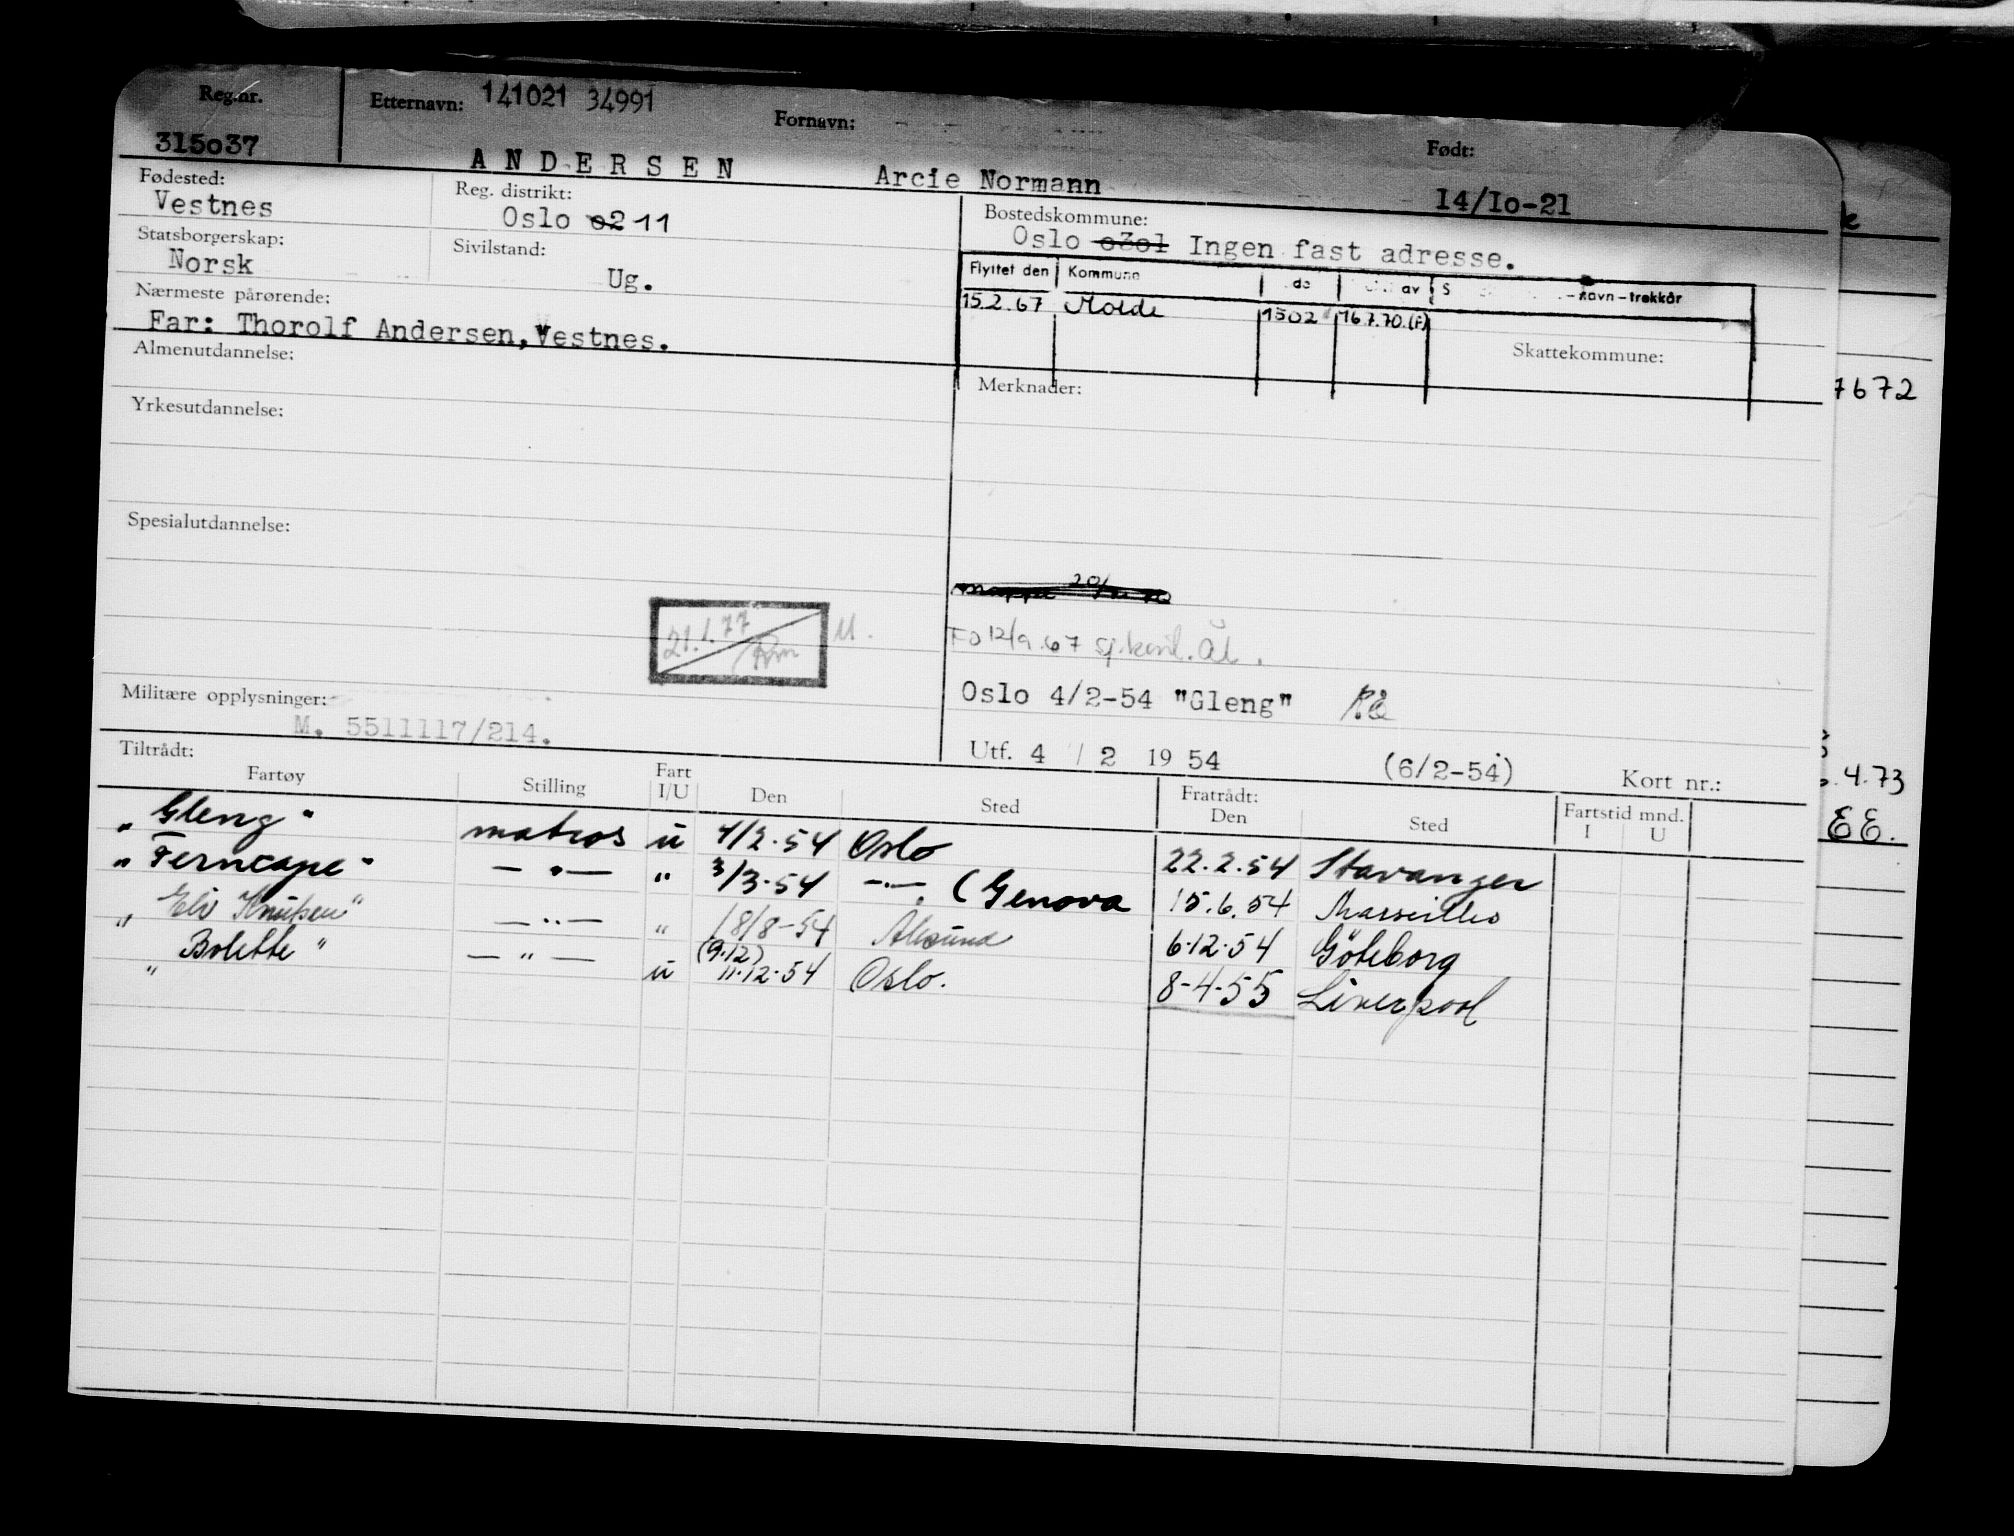 Reg.nr. Etternavn: 141021 34991 Fornavn: Født:
315o37 ANDERSEN Arcie Normann 14/Io-21
Fødested: Reg. distrikt: Bostedskommune:
Vestnes Oslo o2 11 Oslo o3o1 Ingen fast adresse.
Statsborgerskap: Sivilstand:
Norsk Ug.
Flyttet den Kommune av S -navn-trekkår
15.2.67 Molde 1502 16.7.70.(F)
Nærmeste pårørende:
Far: Thorolf Andersen, Vestnes.
Skattekommune:
Almenutdannelse: Merknader:
7672
Yrkesutdannelse:
Spesialutdannelse:
21.1.77 M.
FD 12/9.67
Militære opplysninger: Oslo 4/2-54 "Gleng"
M. 5511117/214.
Utf. 4 / 2 1954 (6/2-54) Kort nr.:
4.73
EE.
Tiltrådt: Fratrådt: Fartstid mnd.
Fartøy Stilling Fart I/U Den Sted Den Sted I U
"Gleng" matros u 4/2.54 Oslo 22.2.54 Stavanger
"Ferncape" — " — " 3/3.54 — " — (Genova 15.6.54 Marseilles
"Eli Knudsen" — " — " 18/8-54 Ålesund 6.12.54 Göteborg
(9.12)
"Bolette" — " — u 11.12.54 Oslo. 8-4-55 Liverpool